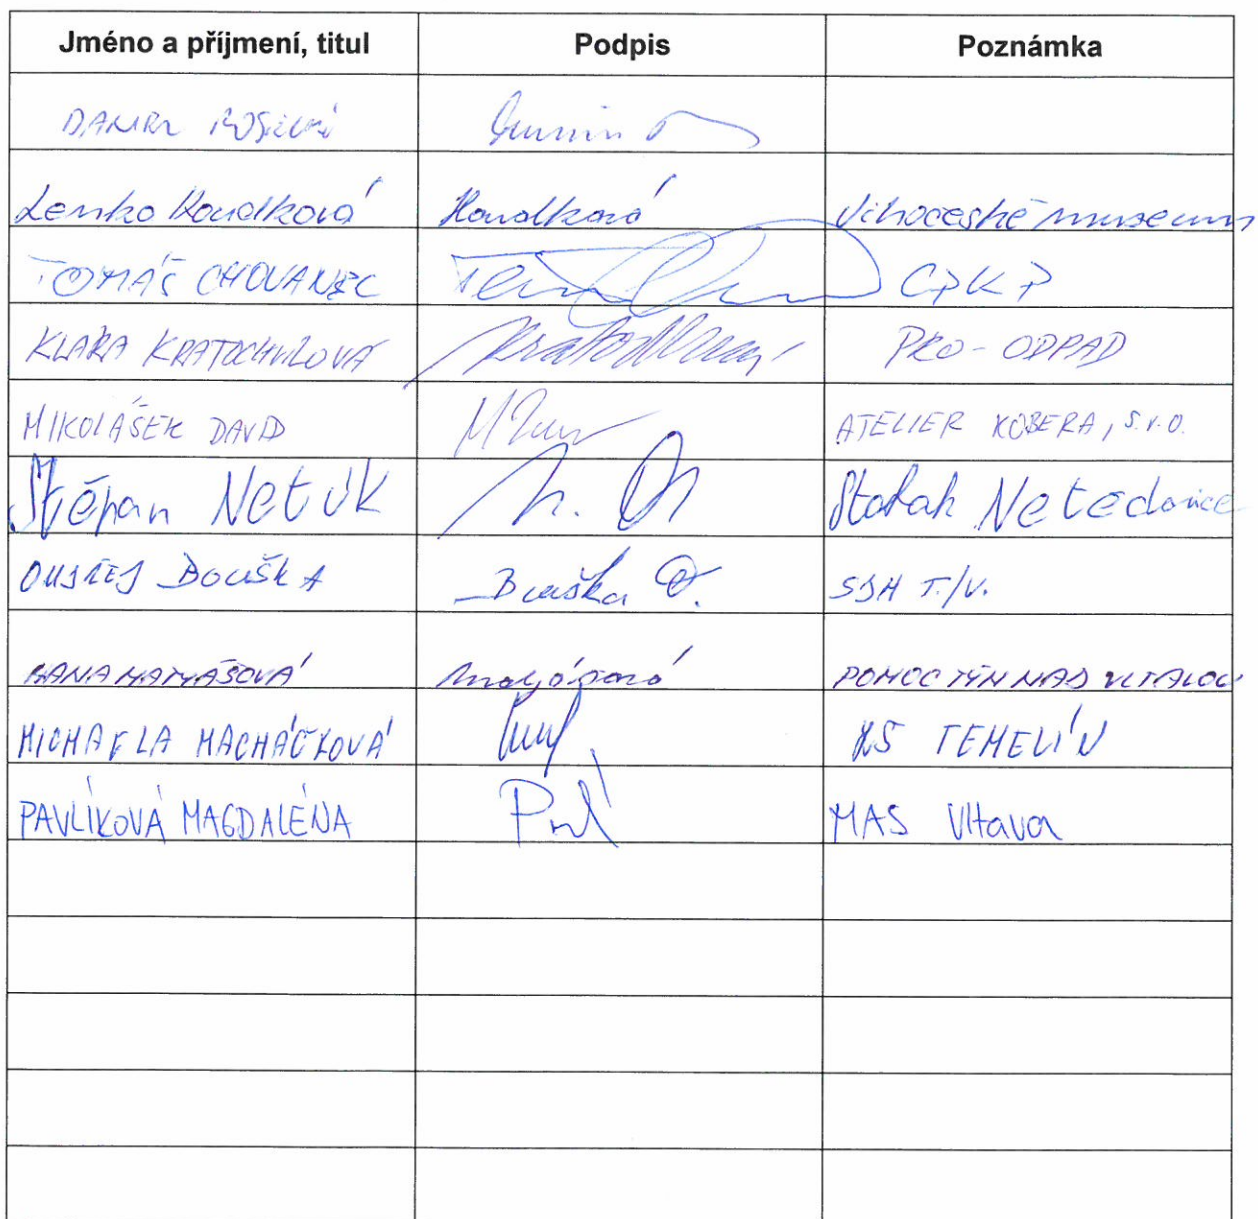 Jméno a příjmení, titul Podpis Poznámka
DANIEL
Lenka Houdková Houdková Jihočeské museum
TOMÁŠ CHOVANEC CPKP
KLÁRA KRATOCHVÍLOVÁ PRO-ODPAD
MIKOLÁŠEK DAVID ATELIER KOBERA, s.r.o.
Štěpán Netík Statak Netěchovice
ONDŘEJ BOUŠKA Bouška O. SDH T./V.
HANA MATYÁŠOVÁ Matyášová POMOC TÝN NAD VLTAVOU
MICHAELA MACHÁČKOVÁ ZŠ TEMELÍN
PAVLÍKOVÁ MAGDALÉNA MAS Vltava